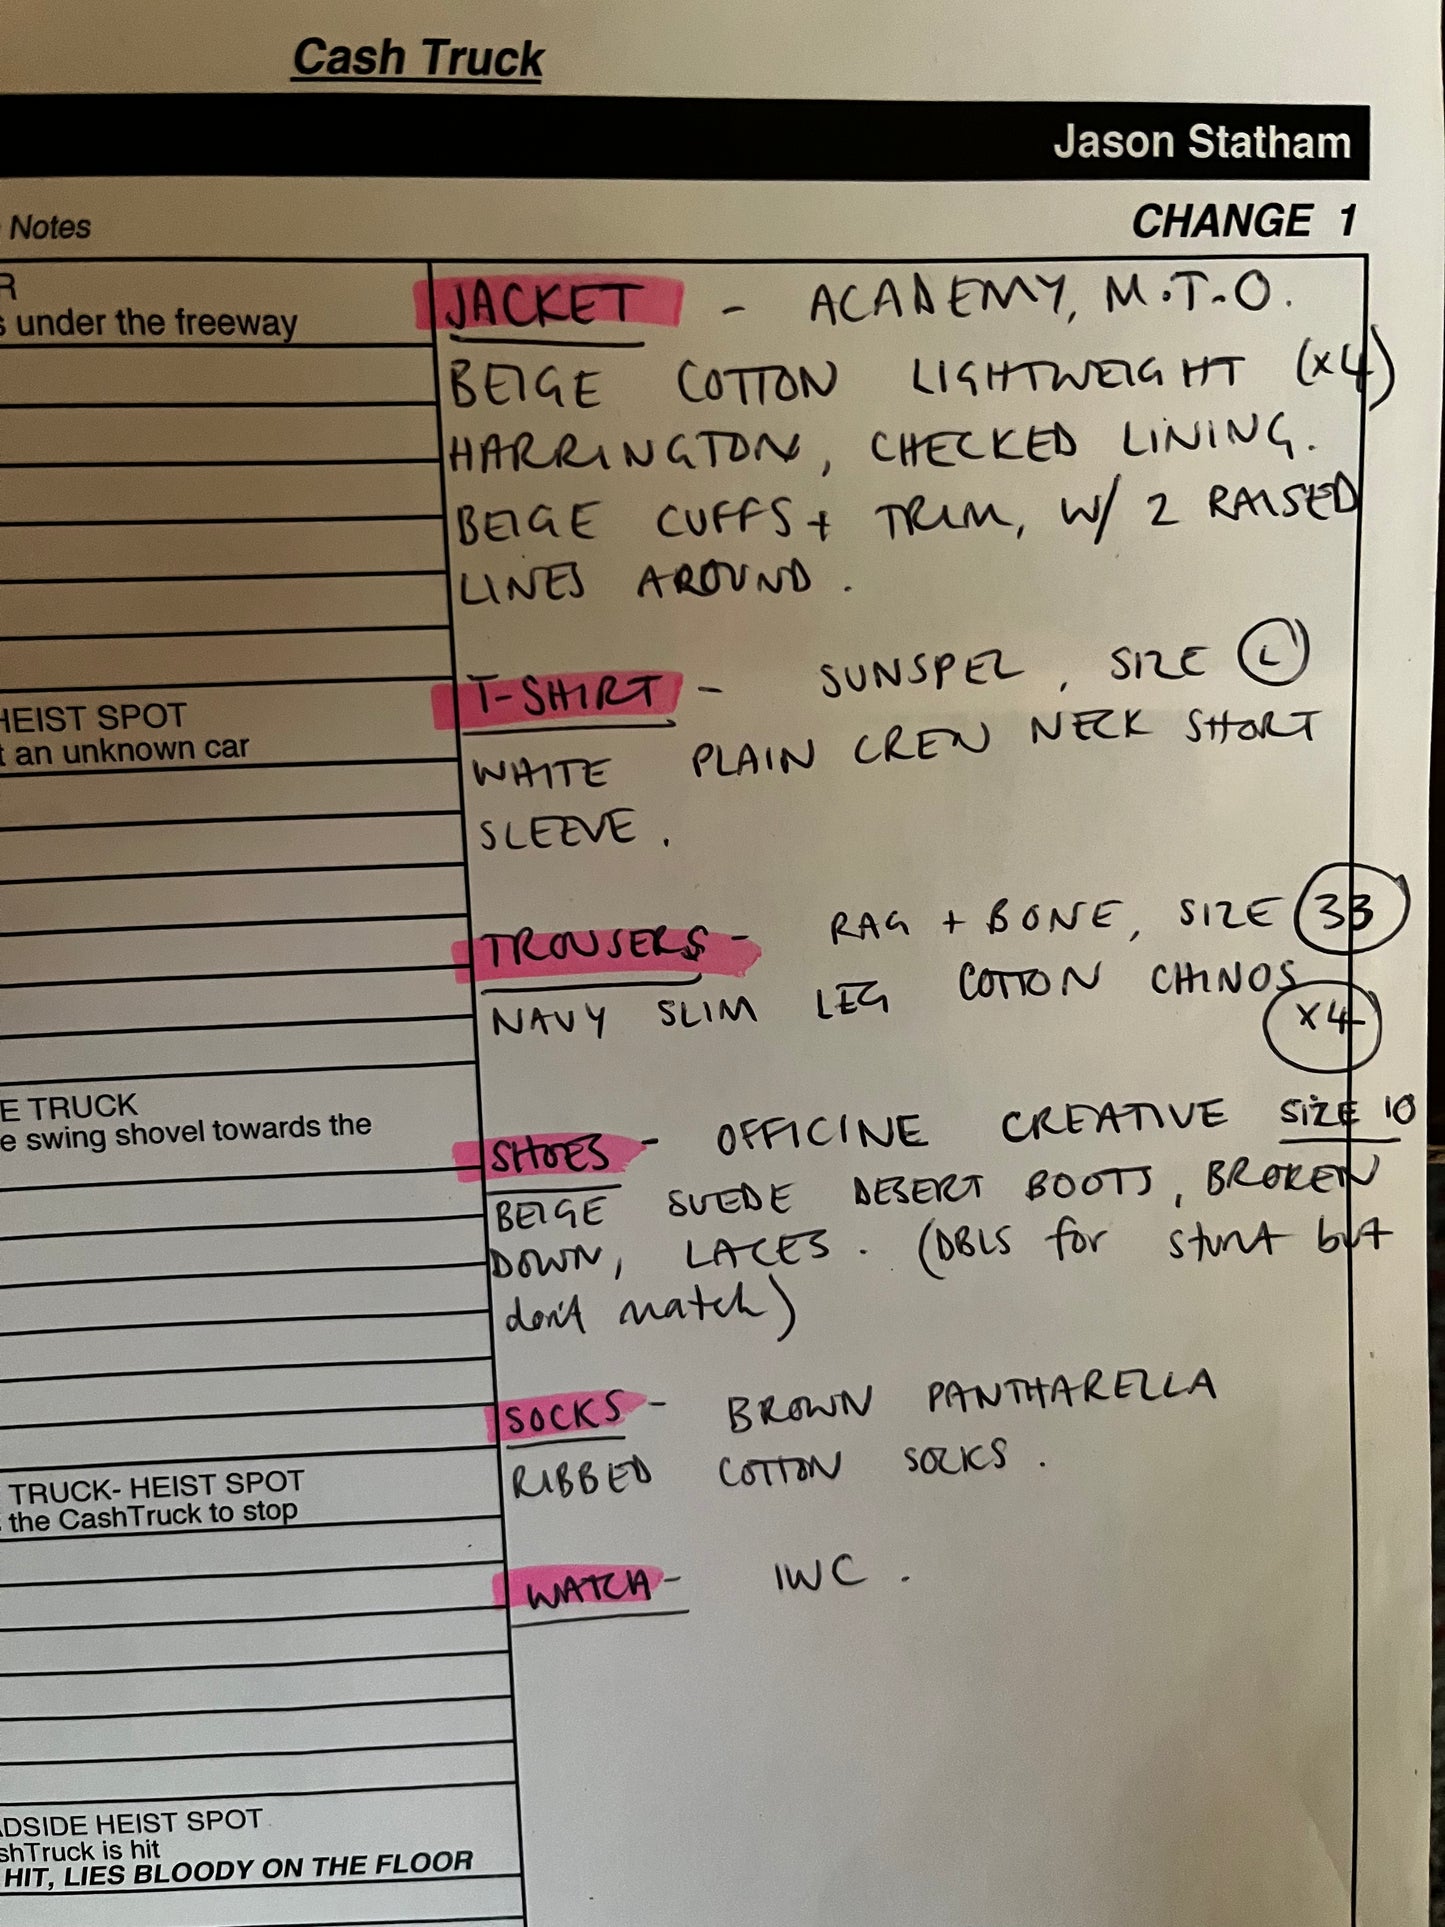 Cash Truck
Jason Statham
Notes
CHANGE 1
R
s under the freeway
HEIST SPOT
t an unknown car
E TRUCK
e swing shovel towards the
TRUCK- HEIST SPOT
the CashTruck to stop
ADSIDE HEIST SPOT
shTruck is hit
HIT, LIES BLOODY ON THE FLOOR
JACKET - ACADEMY, M.T.O.
BEIGE COTTON LIGHTWEIGHT (x4)
HARRINGTON, CHECKED LINING.
BEIGE CUFFS + TRIM, W/ 2 RAISED
LINES AROUND.
T-SHIRT - SUNSPEL, SIZE L
WHITE PLAIN CREW NECK SHORT
SLEEVE.
TROUSERS - RAG + BONE, SIZE 33
NAVY SLIM LEG COTTON CHINOS
x4
SHOES - OFFICINE CREATIVE SIZE 10
BEIGE SUEDE DESERT BOOTS, BROKEN
DOWN, LACES. (DBLS for stunt but
don't match)
SOCKS - BROWN PANTHARELLA
RIBBED COTTON SOCKS.
WATCH - IWC.